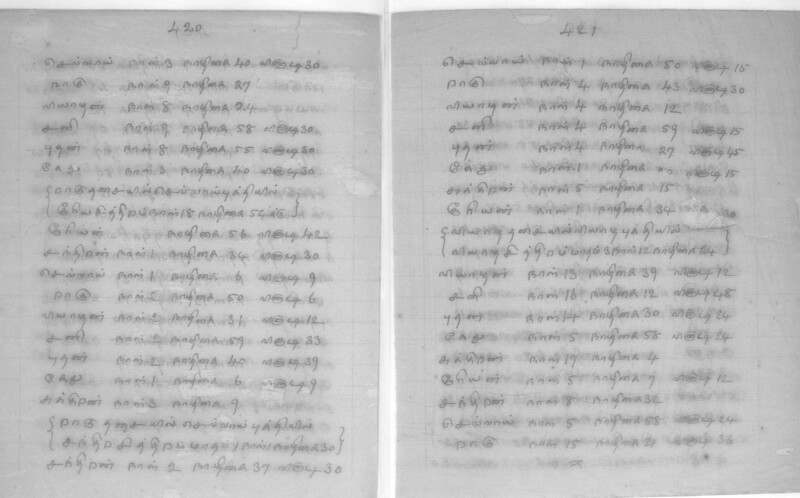 420
செவ்வாய் நாள் 3 நாழிகை 40 விகடி 30
ராகு நாள் 9 நாழிகை 27
வியாழன் நாள் 8 நாழிகை 24
சனி நாள் 9 நாழிகை 58 விகடி 30
புதன் நாள் 8 நாழிகை 55 விகடி 30
கேது நாள் 3 நாழிகை 40 விகடி 30
சூரியன் நாழிகை 56 விகடி 42
சந்திரன் நாள் 1 நாழிகை 34 விகடி 30
செவ்வாய் நாள் 1 நாழிகை 6 விகடி 9
ராகு நாள் 2 நாழிகை 50 விகடி 6
வியாழன் நாள் 2 நாழிகை 31 விகடி 12
சனி நாள் 2 நாழிகை 59 விகடி 33
புதன் நாள் 2 நாழிகை 40 விகடி 39
கேது நாள் 1 நாழிகை 6 விகடி 9
சுக்கிரன் நாள் 3 நாழிகை 9
சந்திரன் நாள் 2 நாழிகை 37 விகடி 30
421
செவ்வாய் நாள் 1 நாழிகை 50 விகடி 15
ராகு நாள் 4 நாழிகை 43 விகடி 30
வியாழன் நாள் 4 நாழிகை 12
சனி நாள் 4 நாழிகை 59 விகடி 15
புதன் நாள் 4 நாழிகை 27 விகடி 45
கேது நாள் 1 நாழிகை விகடி 15
சுக்கிரன் நாள் 5 நாழிகை 15
சூரியன் நாள் 1 நாழிகை 34 30
வியாழன் நாள் 13 நாழிகை 39 விகடி 12
சனி நாள் 16 நாழிகை 12 விகடி 48
புதன் நாள் 14 நாழிகை 30 விகடி 24
கேது நாள் 5 நாழிகை 58 விகடி 24
சுக்கிரன் நாள் 17 நாழிகை 4
சூரியன் நாள் 5 நாழிகை 7 விகடி 12
சந்திரன் நாள் 8 நாழிகை 32
செவ்வாய் நாள் 5 நாழிகை 58 விகடி 24
ராகு நாள் 15 நாழிகை 21 விகடி 36